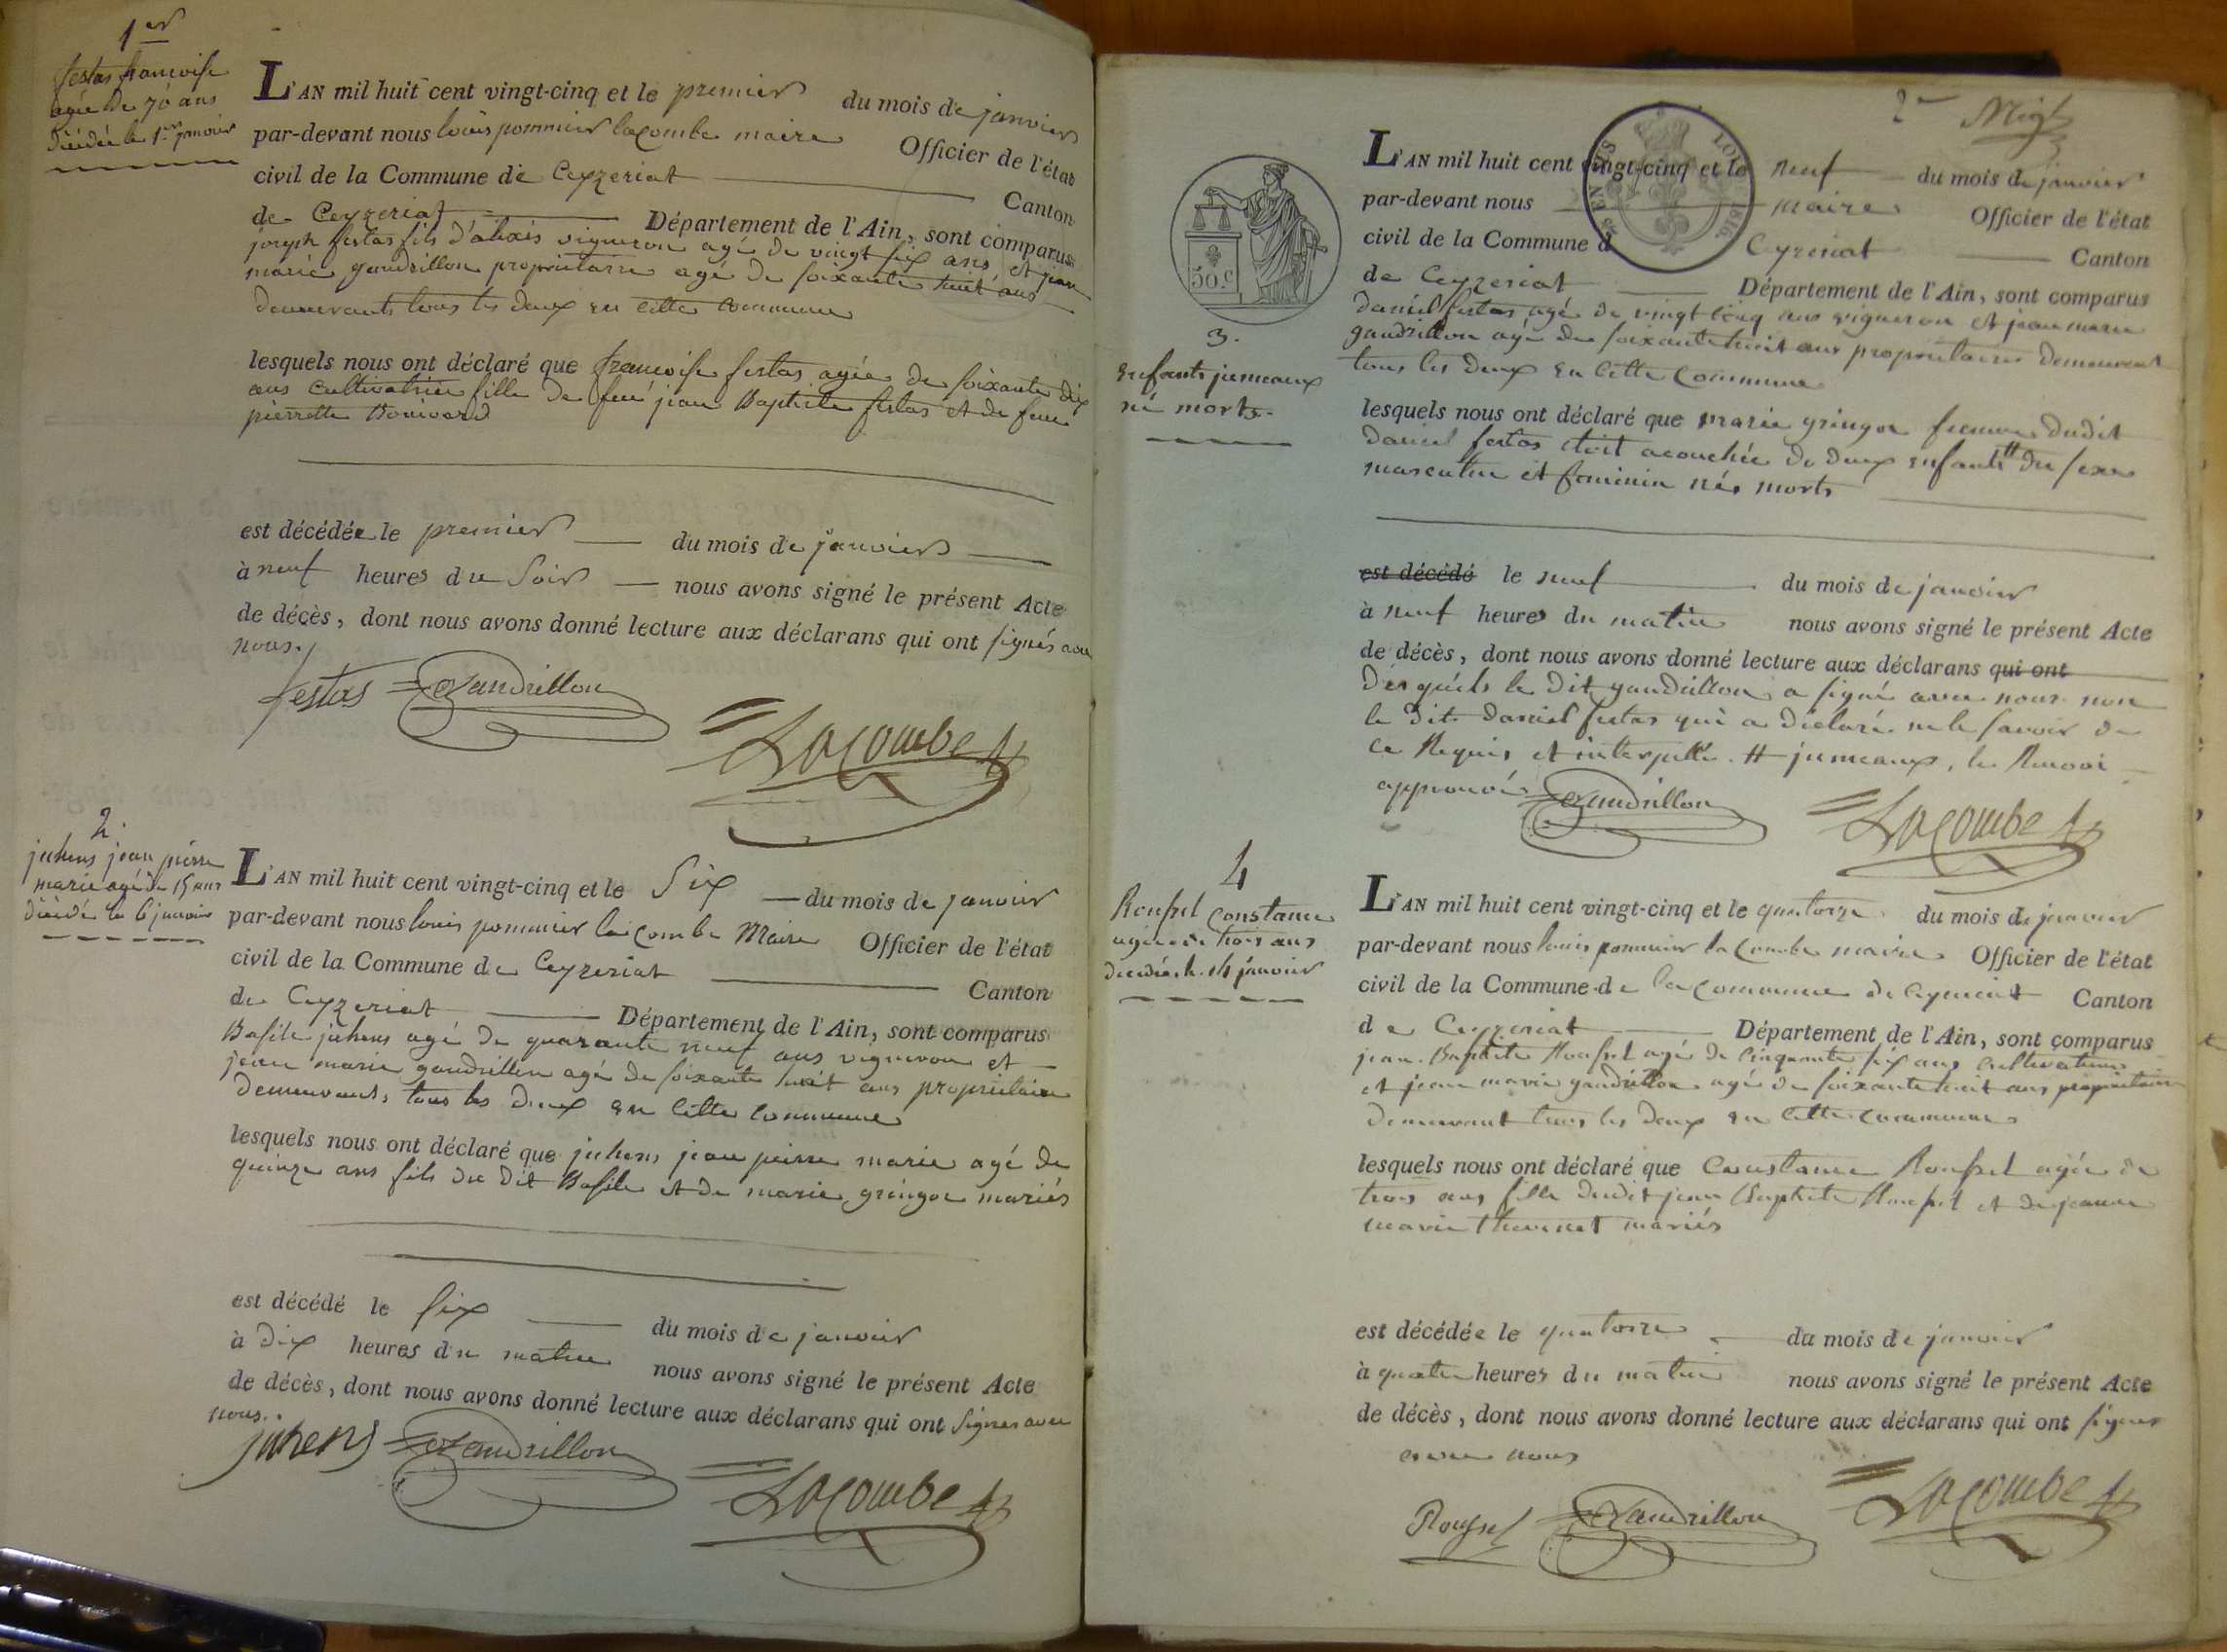 1er
festas francoise
agée de 70 ans
décédée le 1er janvier
L'AN mil huit cent vingt-cinq et le premier du mois de janvier
par-devant nous louis pommier lacombe maire Officier de l'état
civil de la Commune de Ceyzeriat Canton
de Ceyzeriat Département de l'Ain, sont comparus
joseph festas fils d'alexis vigneron agé de vingt six ans et jean
marie gaudrillon propriétaire agé de soixante huit ans
demeurants tous les deux en cette commune
lesquels nous ont déclaré que francoise festas agée de soixante dix
ans cultivatrice fille de feu jean Baptiste festas et de feue
pierrette Bonivard
est décédée le premier du mois de janvier
à neuf heures du soir nous avons signé le présent Acte
de décès, dont nous avons donné lecture aux déclarans qui ont signés avec
nous.
festas Gaudrillon
Lacombe
2
juhens jean pierre
marie agé de 15 ans
décédé le 6 janvier
L'AN mil huit cent vingt-cinq et le six du mois de janvier
par-devant nous louis pommier lacombe Maire Officier de l'état
civil de la Commune de Ceyzeriat Canton
de Ceyzeriat Département de l'Ain, sont comparus
Basile juhens agé de quarante neuf ans vigneron et
jean marie gaudrillon agé de soixante huit ans propriétaire
demeurants tous les deux en cette commune
lesquels nous ont déclaré que juhens jean pierre marie agé de
quinze ans fils du dit Basile et de marie gringoz mariés
est décédé le six du mois de janvier
à dix heures du matin nous avons signé le présent Acte
de décès, dont nous avons donné lecture aux déclarans qui ont signés avec
nous.
juhens Gaudrillon
Lacombe
2e
50.c
3.
enfants jumeaux
né morts.
L'AN mil huit cent vingt-cinq et le neuf du mois de janvier
par-devant nous maire Officier de l'état
civil de la Commune d Cyzeriat Canton
de Ceyzeriat Département de l'Ain, sont comparus
daniel festas agé de vingt cinq ans vigneron et jean marie
gaudrillon agé de soixante huit ans propriétaire demeurant
tous les deux en cette commune
lesquels nous ont déclaré que marie gringoz femme dudit
daniel festas étoit acouchée de deux enfants # du sexe
masculin et feminin nés morts
est décédé le neuf du mois de janvier
à neuf heures du matin nous avons signé le présent Acte
de décès, dont nous avons donné lecture aux déclarans qui ont
desquels le dit gaudrillon a signé avec nous non
le dit daniel festas qui a déclaré ne le savoir de
ce Requis et interpellé. # jumeaux, le Renvoi
approuvé Gaudrillon
Lacombe
4
Roussel Constance
agée de trois ans
décédée le 14 janvier
L'AN mil huit cent vingt-cinq et le quatorze du mois de janvier
par-devant nous louis pommier lacombe maire Officier de l'état
civil de la Commune de la commune de Ceyzeriat Canton
de Ceyzeriat Département de l'Ain, sont comparus
jean Baptiste Roussel agé de cinquante six ans cultivateur
et jean marie gaudrillon agé de soixante huit ans propriétaire
demeurant tous les deux en cette commune
lesquels nous ont déclaré que Constance Roussel agée de
trois ans fille dudit jean Baptiste Roussel et de jeanne
marie thevenet mariés
est décédée le quatorze du mois de janvier
à quatre heures du matin nous avons signé le présent Acte
de décès, dont nous avons donné lecture aux déclarans qui ont signés
avec nous
Roussel Gaudrillon
Lacombe